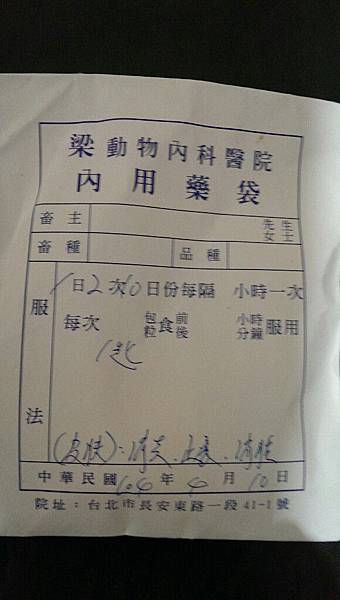 梁動物內科醫院
內用藥袋
畜主 先生 女士
畜種 品種
服法
1日2次10日份每隔 小時一次
每次 包粒 食 前後 小時分鐘 服用
1匙
(皮膚):消炎、止癢、消腫
中華民國104年4月10日
院址:台北市長安東路一段41-1號